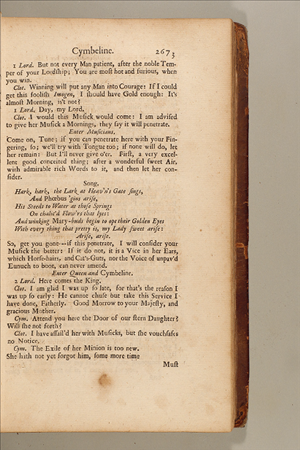 Cymbeline. 2673
1 Lord. But not every Man patient, after the noble Tem-
per of your Lordship; You are most hot and furious, when
you win.
Clot. Winning will put any Man into Courage: If I could
get this foolish Imogen, I should have Gold enough: It's
almost Morning, is't not?
1 Lord. Day, my Lord.
Clot. I would this Musick would come: I am advised
to give her Musick a Mornings, they say it will penetrate.
Enter Musicians.
Come on, Tune; if you can penetrate here with your Fin-
gering, so; we'll try with Tongue too; if none will do, let
her remain: But I'll never give o'er. First, a very excel-
lent good conceited thing; after a wonderful sweet Air,
with admirable rich Words to it, and then let her con-
sider.
Song.
Hark, hark, the Lark at Heav'n's Gate sings,
And Phœbus 'gins arise,
His Steeds to Water at those Springs
On chalic'd Flow'rs that lyes:
And winking Mary-buds begin to ope their Golden Eyes
With every thing that pretty is, my Lady sweet arise:
Arise, arise.
So, get you gone—if this penetrate, I will consider your
Musick the better: If it do not, it is a Vice in her Ears,
which Horse-hairs, and Cat's-Guts, nor the Voice of unpav'd
Eunuch to boot, can never amend.
Enter Queen and Cymbeline.
2 Lord. Here comes the King.
Clot. I am glad I was up so late, for that's the reason I
was up so early: He cannot chuse but take this Service I
have done, Fatherly. Good Morrow to your Majesty, and
gracious Mother.
Cym. Attend you here the Door of our stern Daughter?
Will she not forth?
Clot. I have assail'd her with Musicks, but she vouchsafes
no Notice.
Cym. The Exile of her Minion is too new,
She hath not yet forgot him, some more time
Must